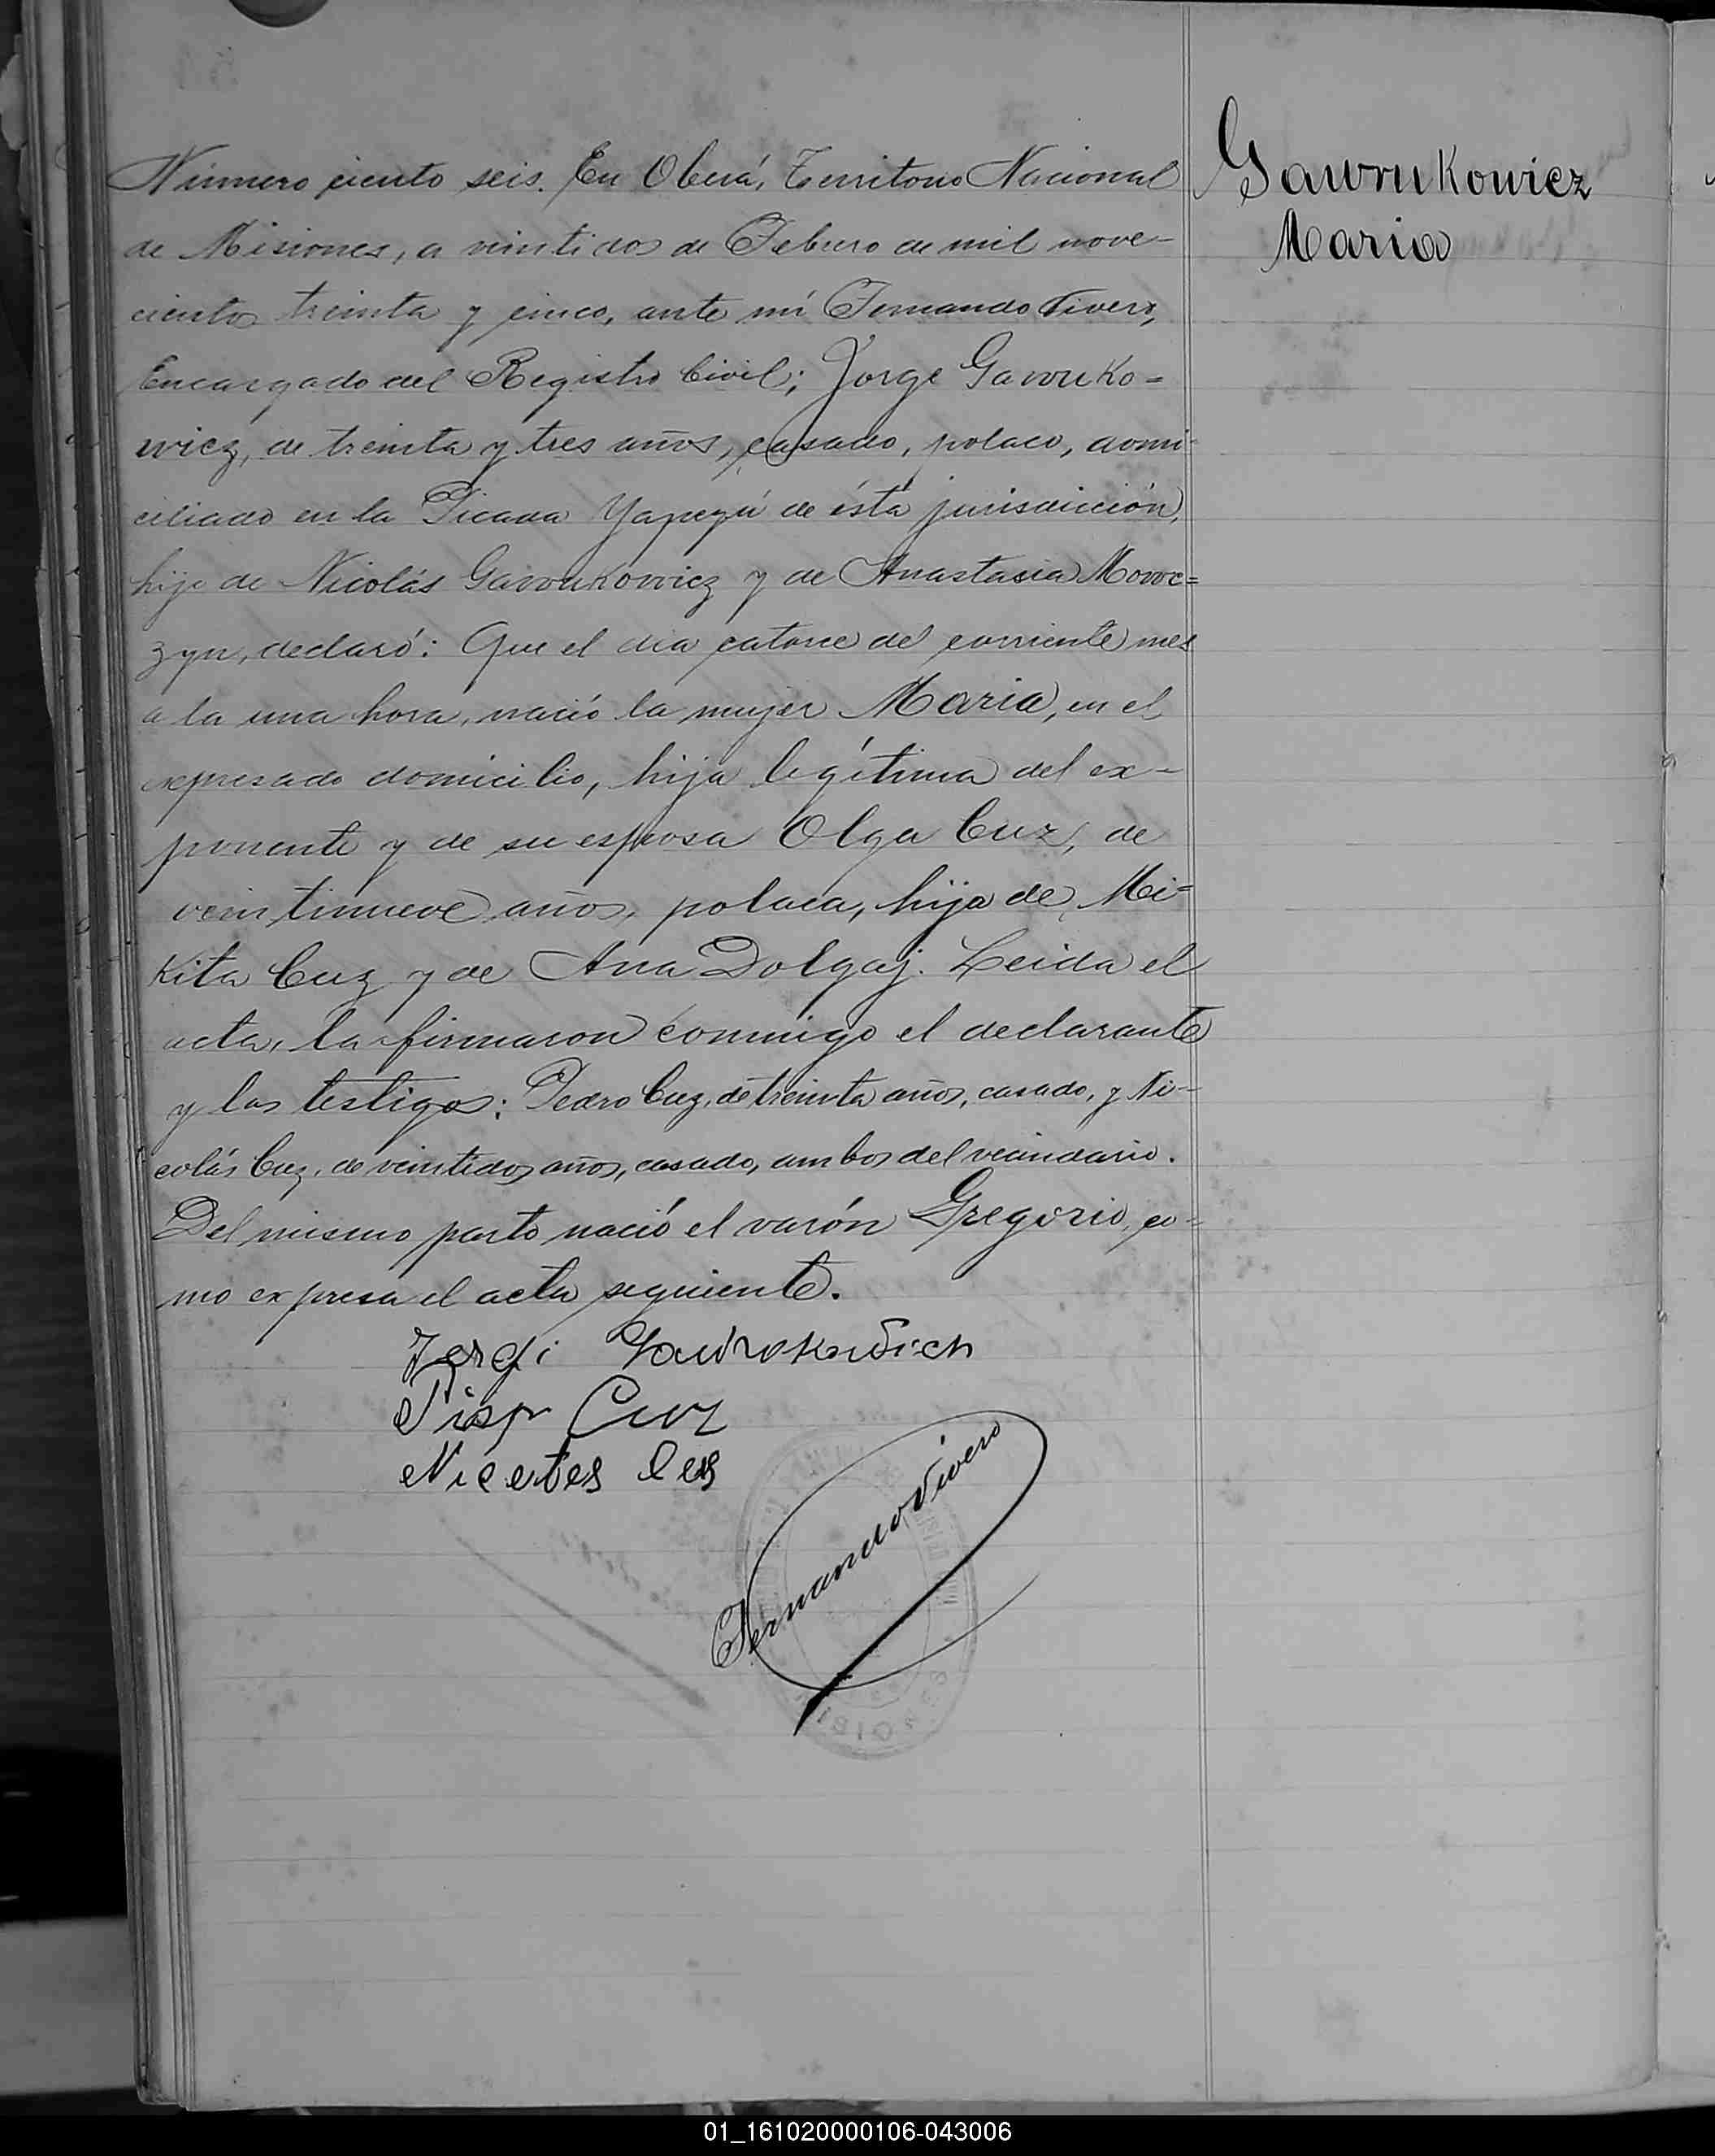 Gawrukowicz
Maria
Número ciento seis. En Oberá, Territorio Nacional
de Misiones, a veintidos de Febrero de mil nove-
cientos treinta y cinco, ante mí Fernando Vivero,
Encargado del Registro Civil; Jorge Gawruko=
wicz, de treinta y tres años, casado, polaco, domi-
ciliado en la Picada Yapeyú de ésta jurisdicción,
hijo de Nicolás Gawrukowicz y de Anastasia
zyn, declaró: Que el día catorce del corriente mes
a la una hora, nació la mujer Maria, en el
expresado domicilio, hija legítima del ex-
ponente y de su esposa Olga Cuz, de
veintinueve años, polaca, hija de Mi=
kita Cuz y de Ana Dolgaj. Leida el
acta, la firmaron conmigo el declarante
y los testigos: Pedro Cuz, de treinta años, casado, y Ni-
colás Cuz, de veintidos años, casado, ambos del vecindario.
Del mismo parto nació el varón Gregorio, co=
mo expresa el acta siguiente.
Cuz
Fernando Vivero
01_161020000106-043006